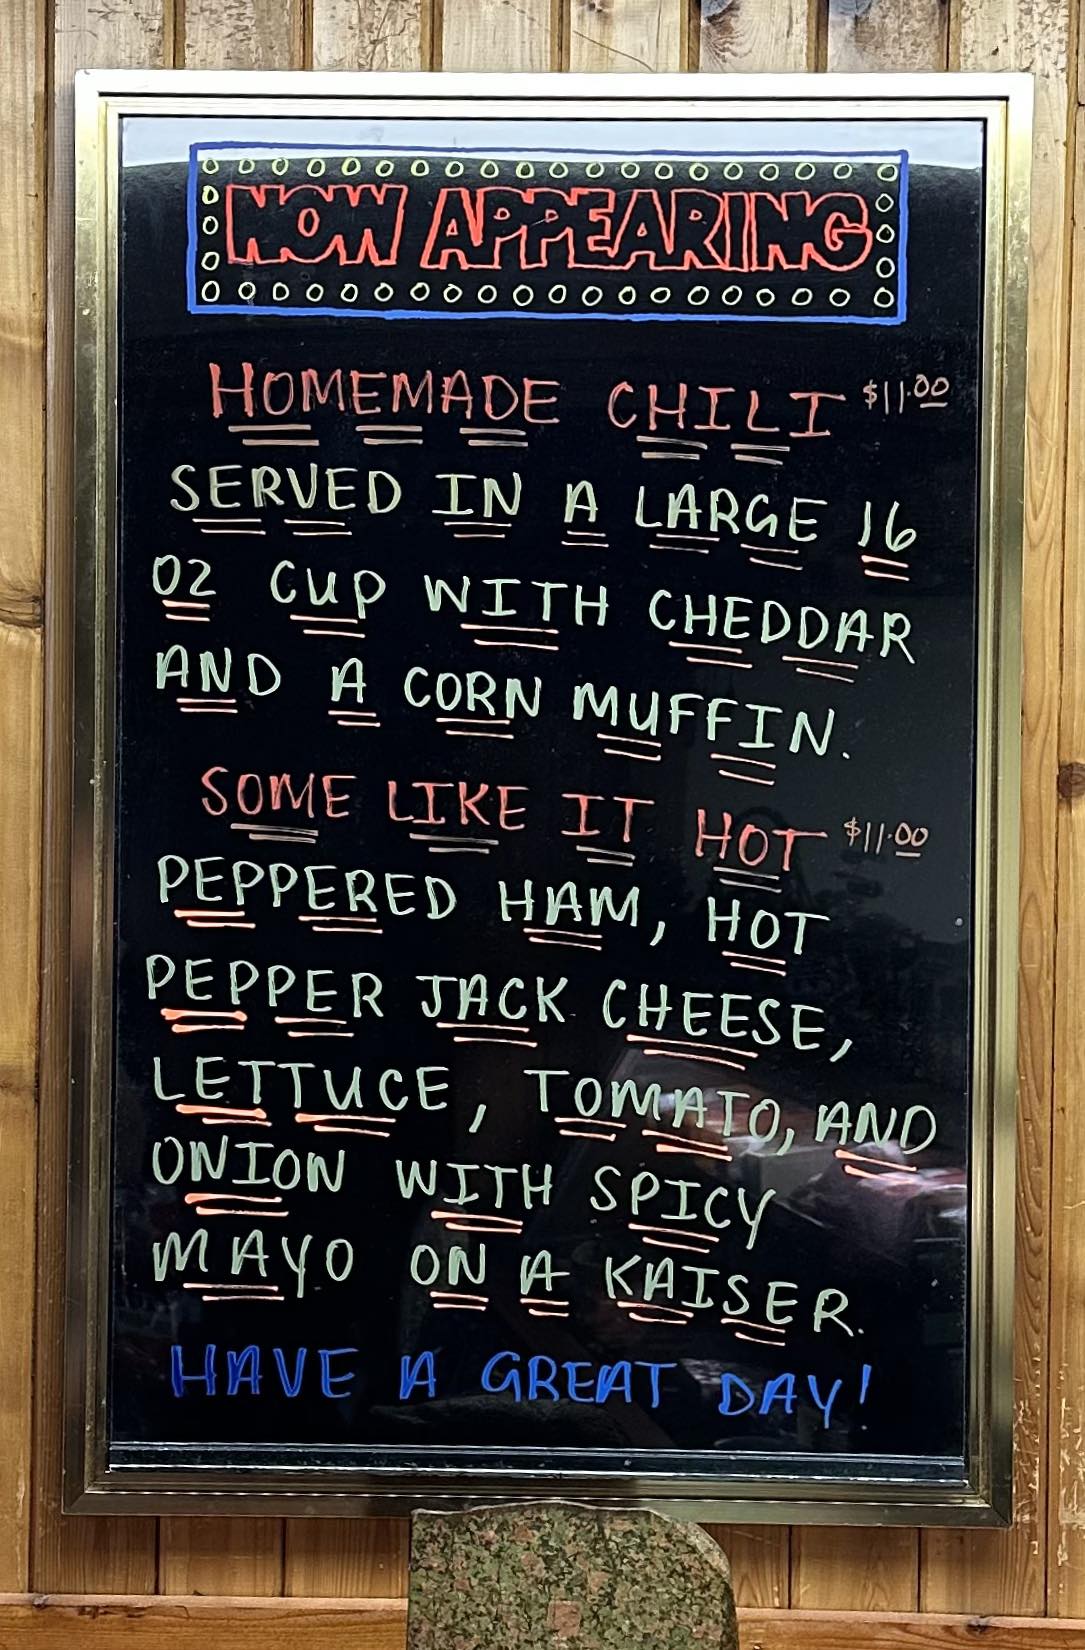 NOW APPEARING
HOMEMADE CHILI $11.00
SERVED IN A LARGE 16
OZ CUP WITH CHEDDAR
AND A CORN MUFFIN.
SOME LIKE IT HOT $11.00
PEPPERED HAM, HOT
PEPPER JACK CHEESE,
LETTUCE, TOMATO, AND
ONION WITH SPICY
MAYO ON A KAISER.
HAVE A GREAT DAY!